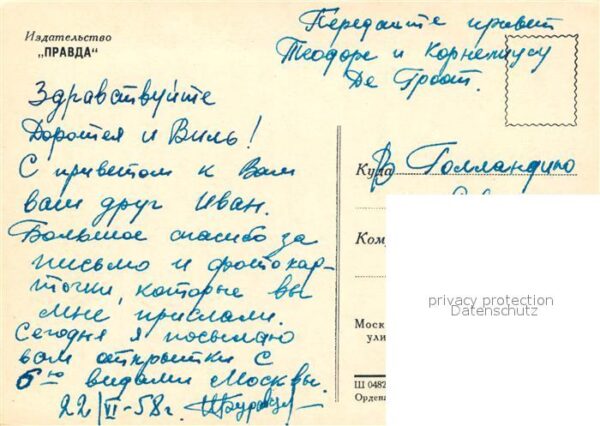 Издательство
„ПРАВДА“
Передайте привет
Теодоре и Корнелиусу
Де Гроот.
Здравствуйте
Доротея и Виль!
С приветом к Вам
ваш друг Иван.
Большое спасибо за
письмо и фотокар-
точки, которые вы
мне прислали.
Сегодня я посылаю
вам открытки с
6ю видами Москвы.
22/VI-58г.
Куда В Голландию
Ком
Моск
ули
Ш 0482
Ордена
privacy protection
Datenschutz